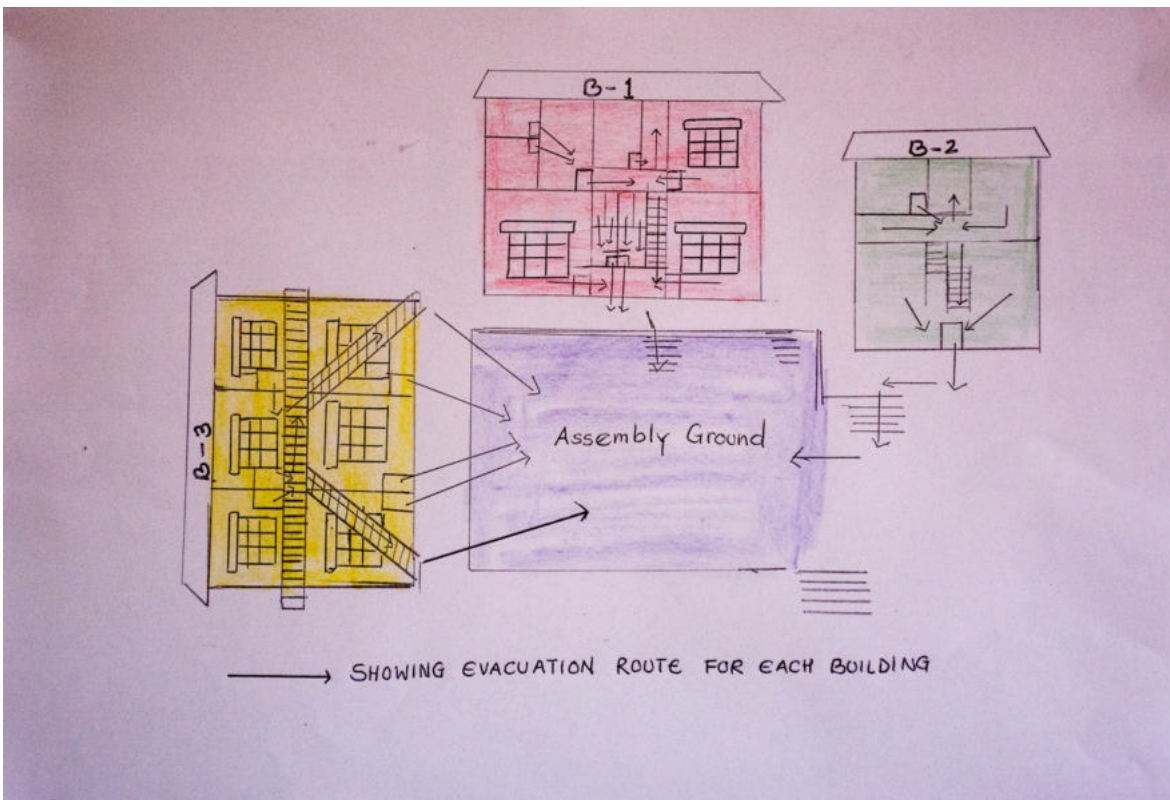 B-1
B-2
B-3
Assembly Ground
SHOWING EVACUATION ROUTE FOR EACH BUILDING